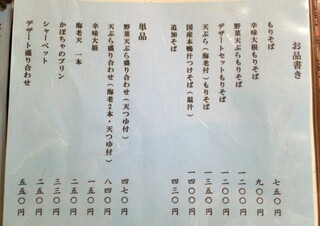 お品書き
もりそば 七五〇円
辛味大根もりそば 九〇〇円
野菜天ぷらもりそば 一二〇〇円
デザートセットもりそば 一二〇〇円
天ぷら(海老付)もりそば 一三五〇円
国産本鴨汁つけそば(温汁) 一四〇〇円
追加そば 四三〇円
単品
野菜天ぷら盛り合わせ(天つゆ付) 四七〇円
天ぷら盛り合わせ(海老2本・天つゆ付) 八四〇円
辛味大根 一五〇円
海老天 一本 二五〇円
かぼちゃのプリン 三三〇円
シャーベット 二五〇円
デザート盛り合わせ 五五〇円